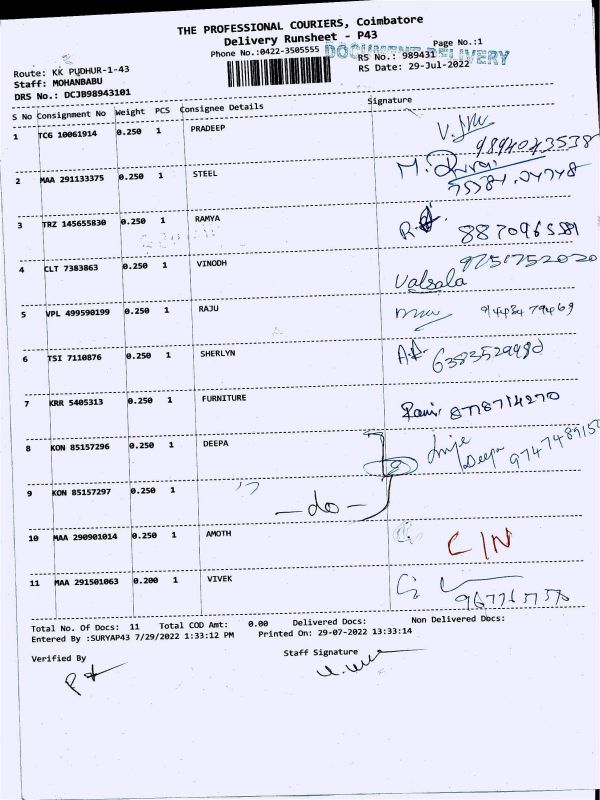 THE PROFESSIONAL COURIERS, Coimbatore
Delivery Runsheet - P43
Phone No.:0422-3505555
DOCUMENT DELIVERY
Page No.:1
RS No.: 989431
RS Date: 29-Jul-2022
Route: KK PUDHUR-1-43
Staff: MOHANBABU
DRS No.: DCJB98943101
S No Consignment No Weight PCS Consignee Details Signature
1 TCG 10061914 0.250 1 PRADEEP
9894043538
2 MAA 291133375 0.250 1 STEEL
3 TRZ 145655830 0.250 1 RAMYA
4 CLT 7383863 0.250 1 VINODH
9751752020
Valsala
5 VPL 499590199 0.250 1 RAJU
6 TSI 7110876 0.250 1 SHERLYN
6383529980
7 KRR 5405313 0.250 1 FURNITURE
8778714270
8 KON 85157296 0.250 1 DEEPA
Deepa
9 KON 85157297 0.250 1
— do —
10 MAA 290901014 0.250 1 AMOTH
C/N
11 MAA 291501063 0.200 1 VIVEK
Total No. Of Docs: 11 Total COD Amt: 0.00 Delivered Docs: Non Delivered Docs:
Entered By :SURYAP43 7/29/2022 1:33:12 PM Printed On: 29-07-2022 13:33:14
Verified By Staff Signature